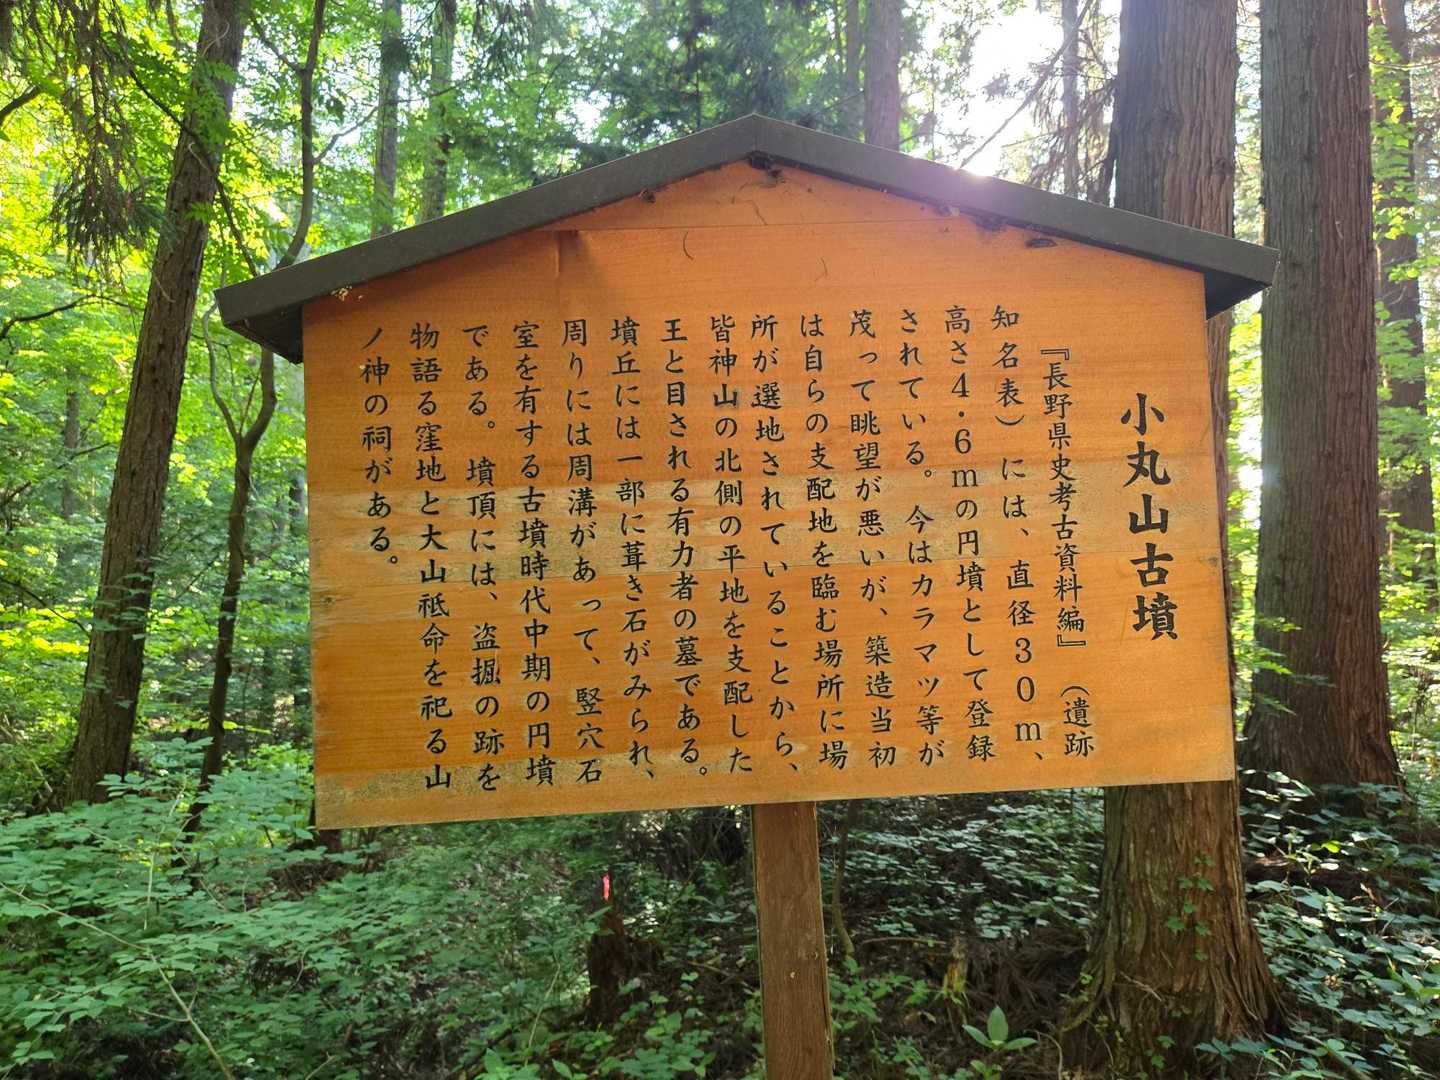 小丸山古墳
『長野県史考古資料編』（遺跡
知名表）には、直径30m、
高さ4・6mの円墳として登録
されている。今はカラマツ等が
茂って眺望が悪いが、築造当初
は自らの支配地を臨む場所に場
所が選地されていることから、
皆神山の北側の平地を支配した
王と目される有力者の墓である。
墳丘には一部に葺き石がみられ、
周りには周溝があって、竪穴石
室を有する古墳時代中期の円墳
である。墳頂には、盗掘の跡を
物語る窪地と大山祇命を祀る山
ノ神の祠がある。